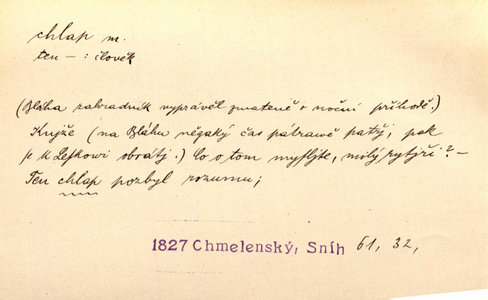 chlap m.
ten – : člověk
(Bláha zahradník vyprávěl zmateně o noční příhodě.)
Kníže (na Bláhu nějaký čas pátravě patřj, pak
se k Leškowi obrátj.) Co o tom myslýte, milý rytjři? –
Ten chlap pozbyl rozumu;
1827 Chmelenský, Sníh 61, 32,